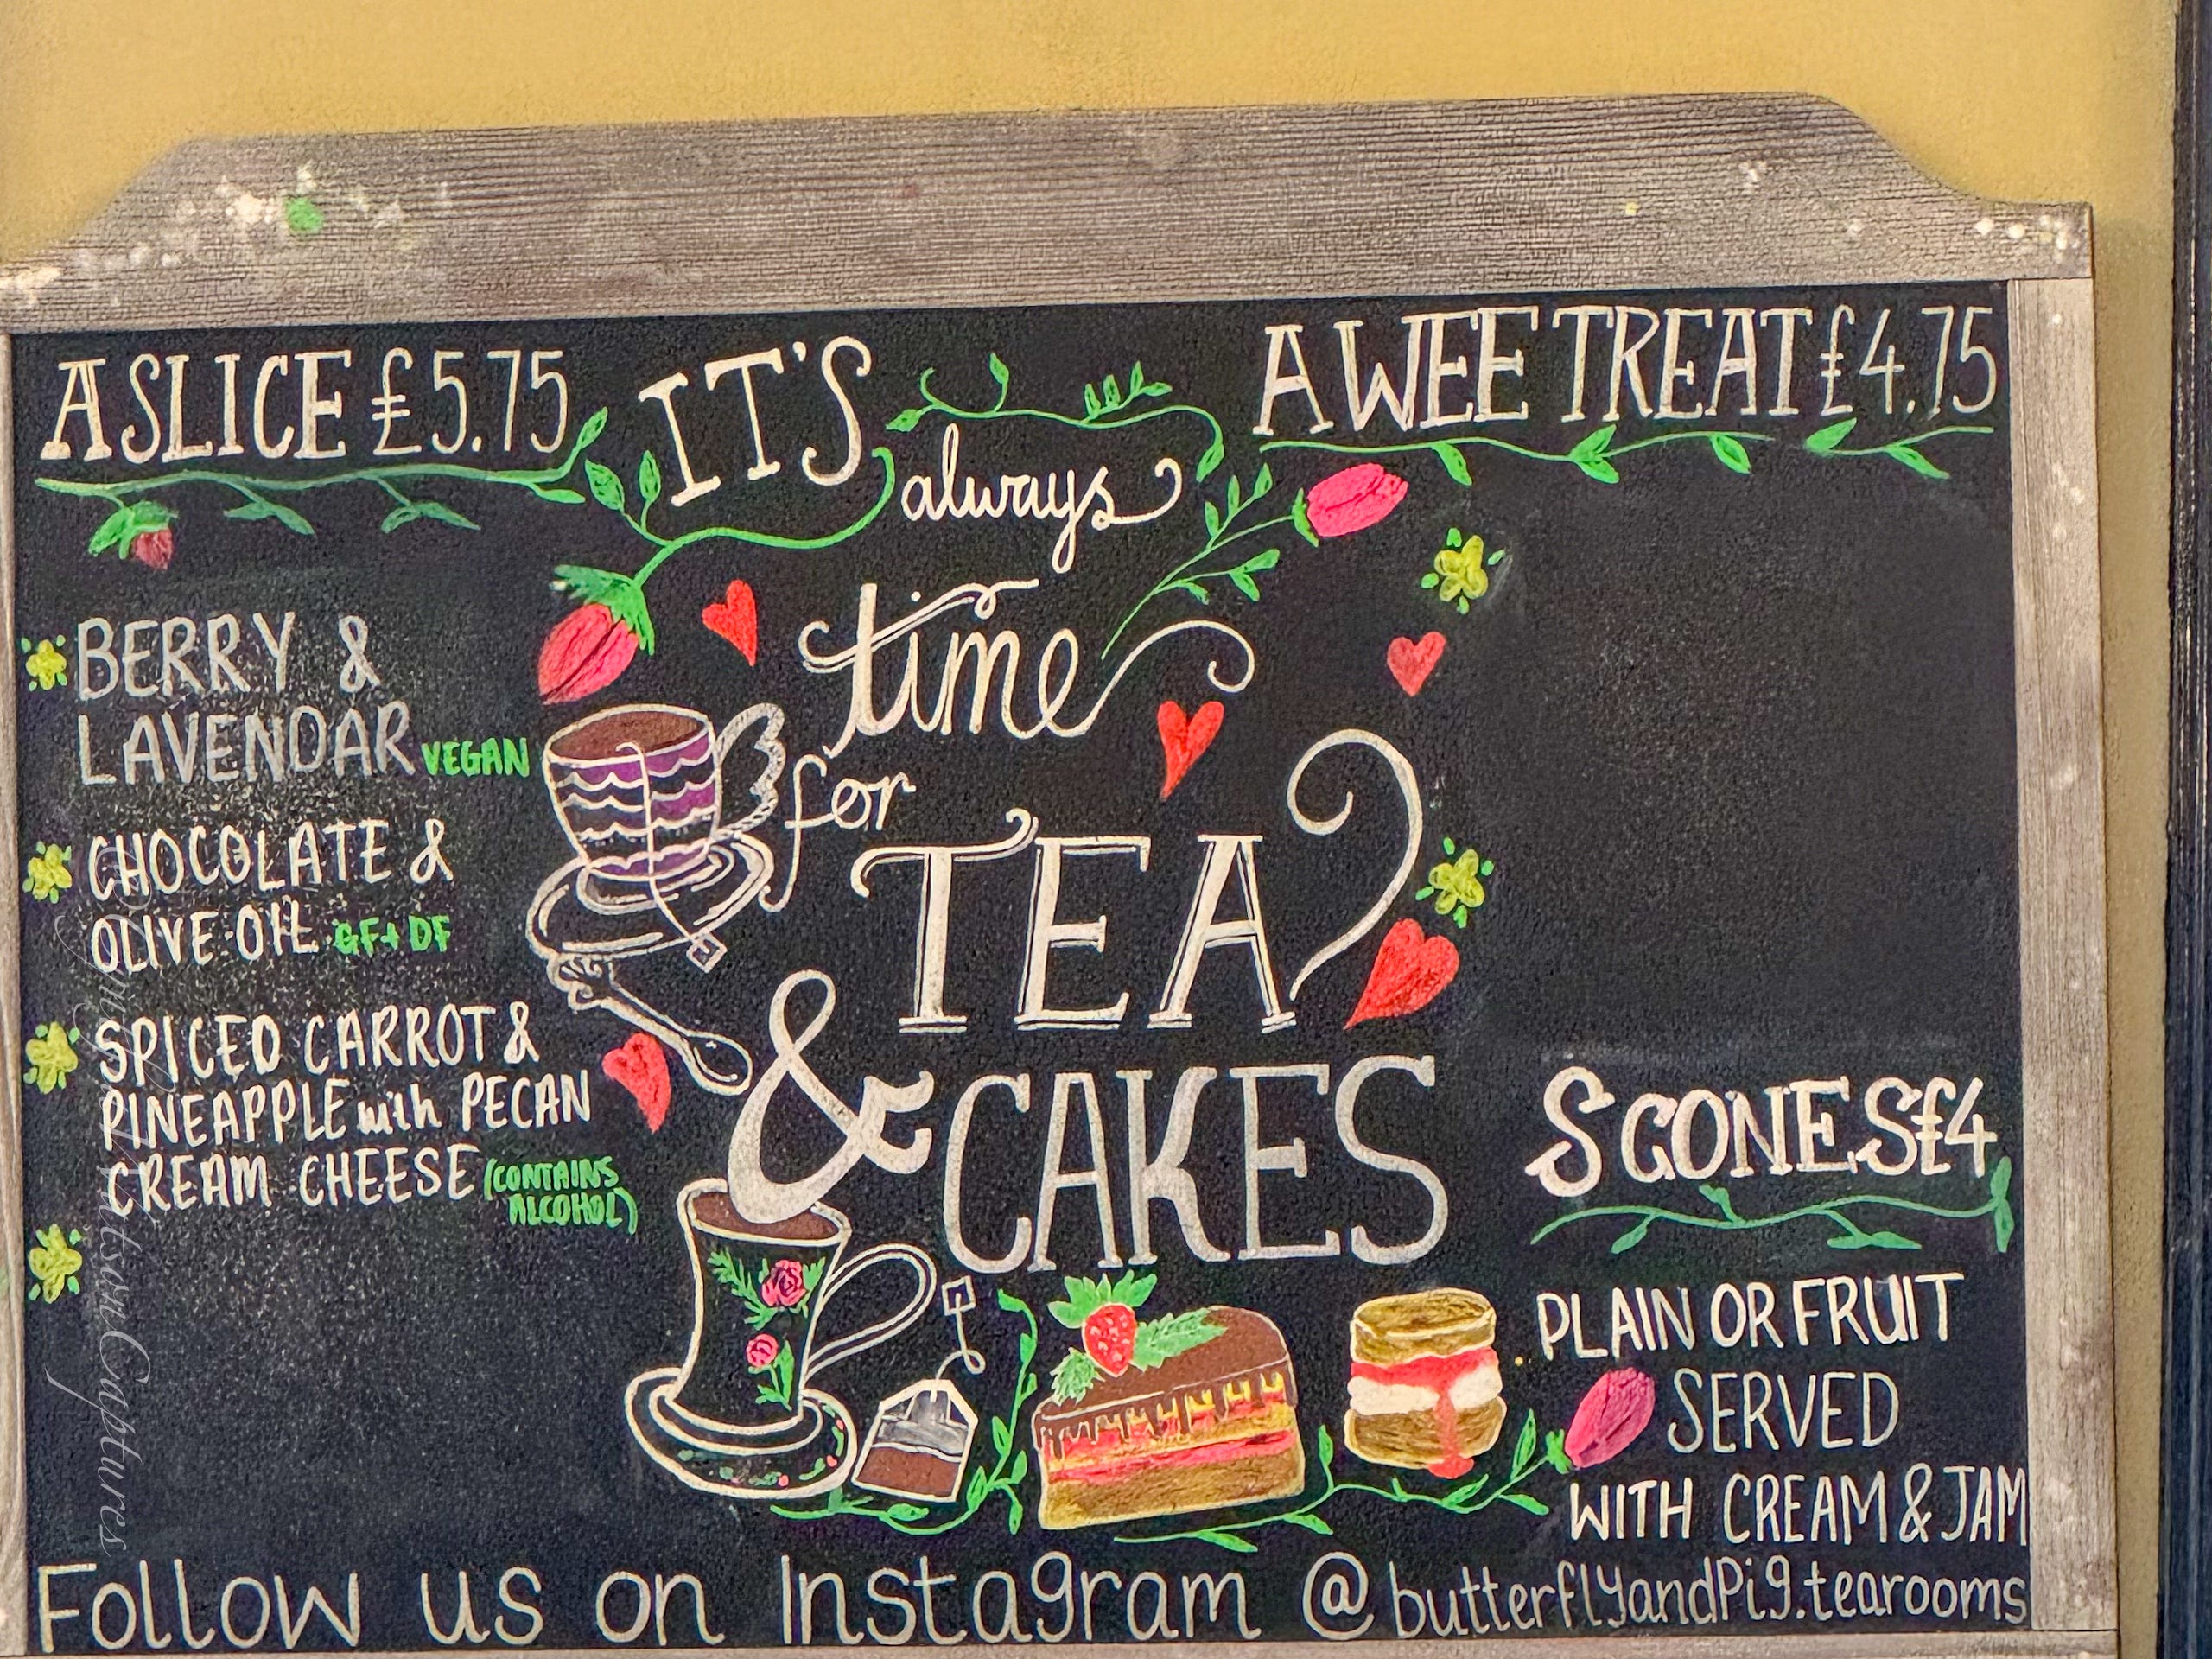 A SLICE £5.75
BERRY &
LAVENDAR VEGAN
CHOCOLATE &
OLIVE OIL GF+DF
SPICED CARROT &
PINEAPPLE with PECAN
CREAM CHEESE (CONTAINS
ALCOHOL)
IT'S
always
time
for
TEA
& CAKES
A WEE TREAT £4.75
SCONES £4
PLAIN OR FRUIT
SERVED
WITH CREAM & JAM
Follow us on Instagram @butterflyandPig.tearooms